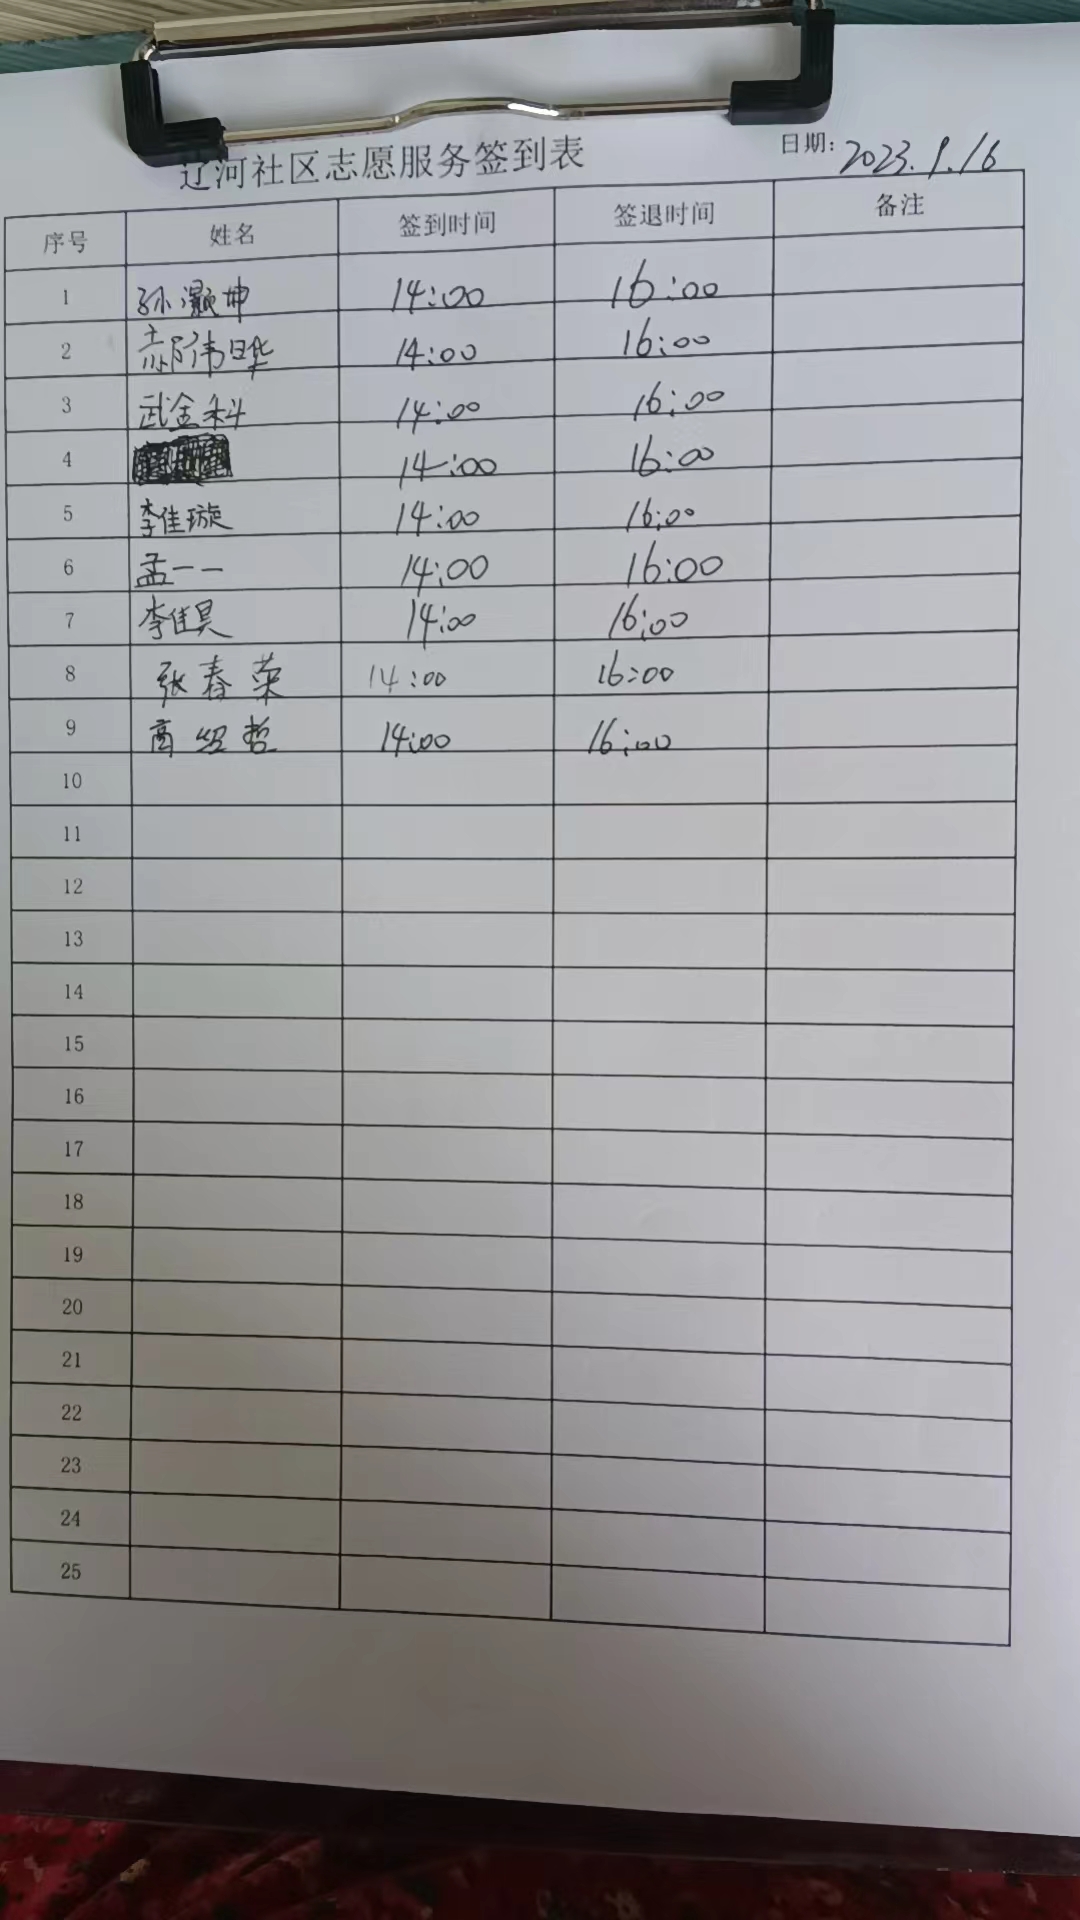 辽河社区志愿服务签到表 日期: 2023.9.16
序号 姓名 签到时间 签退时间 备注
1 孙灏坤 14:00 16:00
2 14:00 16:00
3 武金科 14:00 16:00
4 14:00 16:00
5 李佳璇 14:00 16:00
6 孟一一 14:00 16:00
7 李佳昊 14:00 16:00
8 张春荣 14:00 16:00
9 商 哲 14:00 16:00
10
11
12
13
14
15
16
17
18
19
20
21
22
23
24
25